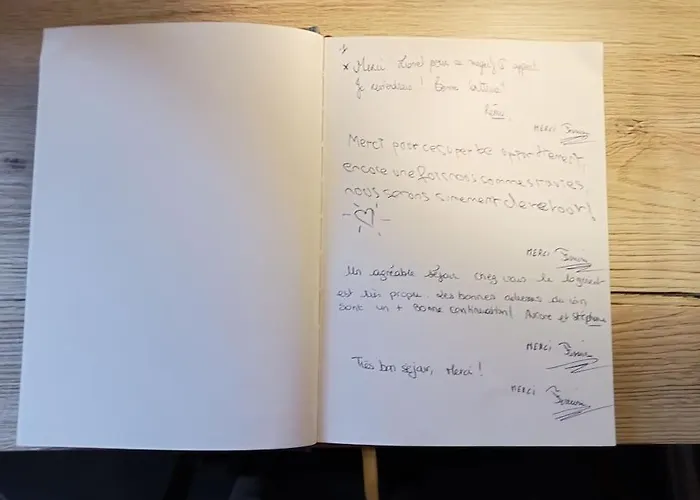 * Merci Lionel pour ce magnif I appart.
Je reviendrais ! Bonne
Rémi
MERCI
Merci pour ce super be appartement,
encore une fois nous sommes ravies
nous serons surement de retour!
MERCI
Un agréable séjour chez vous le logement
est très propre. Les bonnes adresses du coin
sont un + Bonne continuation! Aurore et Stéphane
MERCI
Très bon séjour, Merci !
MERCI